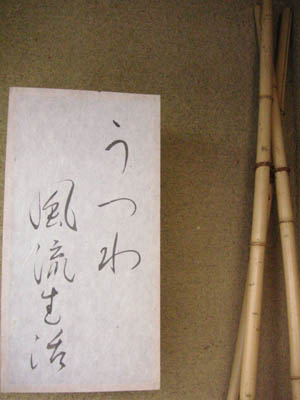 うつわ
風流生活